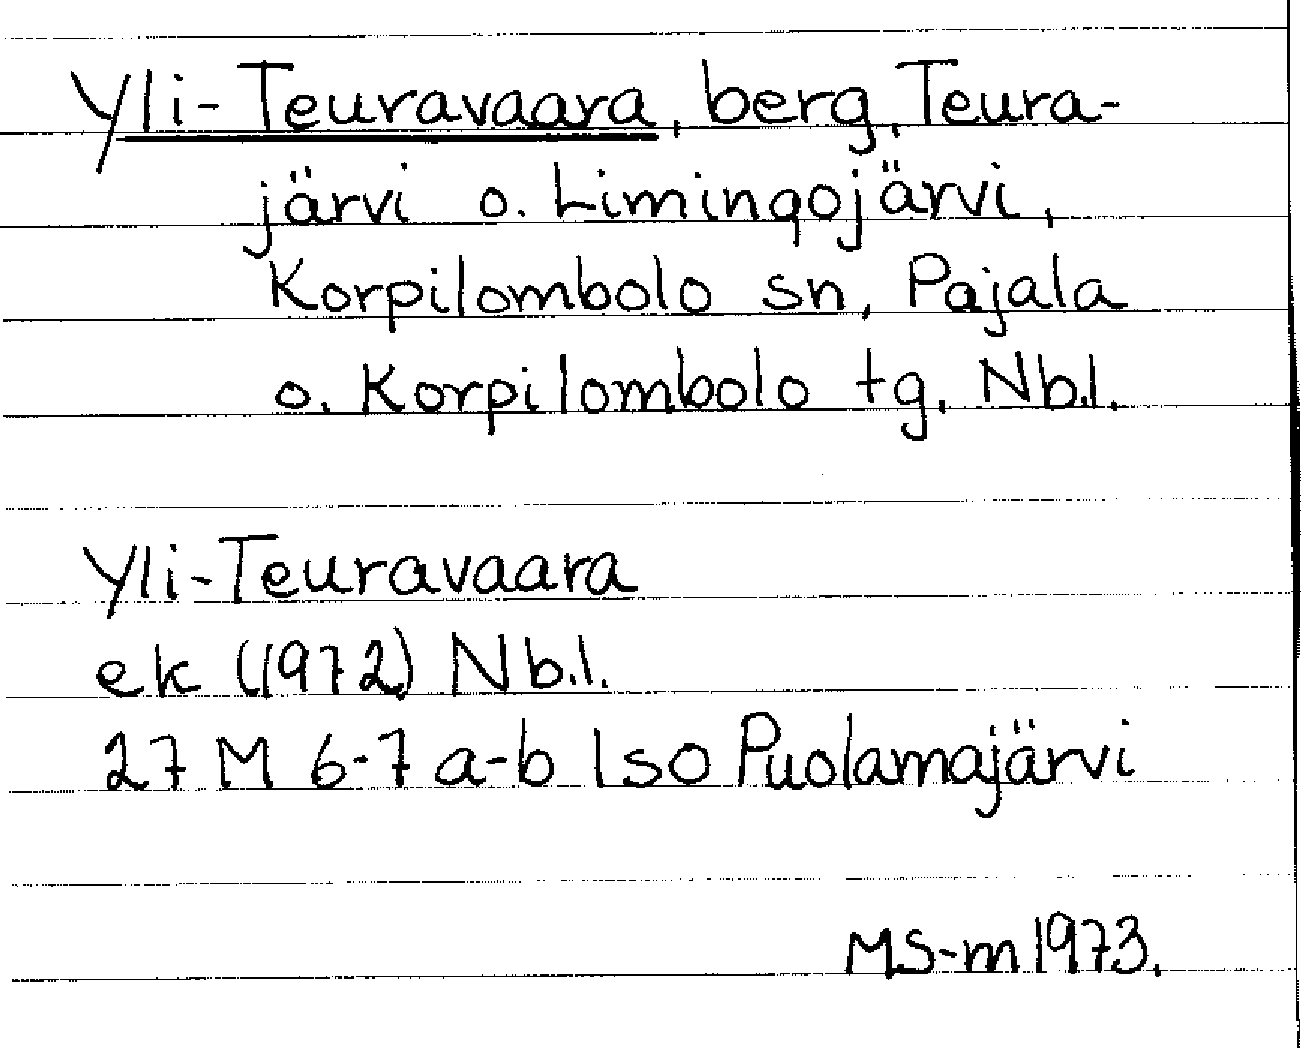 Yli-Teuravaara, berg, Teura-
järvi o. Limingojärvi,
Korpilombolo sn, Pajala
o. Korpilombolo tg, Nb.l.
Yli-Teuravaara
ek (1972) Nb.l.
27 M 6-7 a-b Iso Puolamajärvi
MS-m 1973.